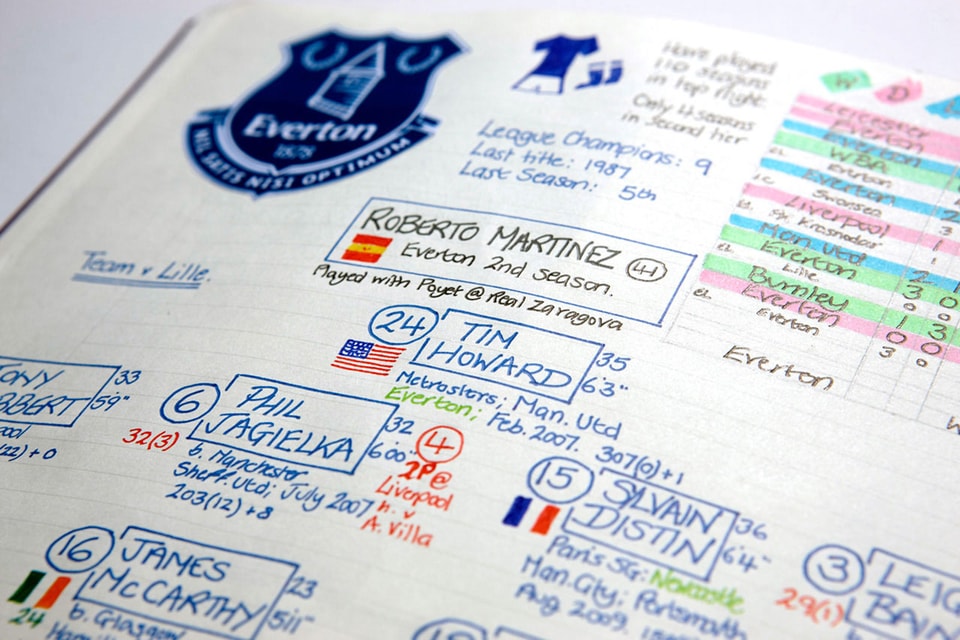 Everton
1878
NIL SATIS NISI OPTIMUM
Have played
110 seasons
in top flight.
Only 4 seasons
in second tier
League Champions: 9
Last title: 1987
Last Season: 5th
ROBERTO MARTINEZ 41
Everton 2nd season.
Played with Poyet @ Real Zaragova
Team v Lille.
W D
Leicester
Everton
Everton
WBA
Everton
EL
Everton 2
Swansea 3
LC
Liverpool 1
Everton 1
EL
FK Krasnodar
Man Utd 2 1
Everton 3 0
EL
Lille 0 0
Burnley 1 3
Everton 0 0
EL
Everton 3 0
Everton
24 TIM
HOWARD
35
6'3"
Metrostars; Man. Utd
Everton; Feb. 2007.
307(0)+1
33
5'9"
6 PHIL
JAGIELKA
32
6'00"
32(3)
b. Manchester
Sheff. Utd; July 2007
203(12)+8
4
2P@
Liverpool
n. v
A. Villa
15 SYLVAIN
DISTIN
36
6'4"
Paris SG; Newcastle
Man. City; Portsmouth
Aug 2009.
16 JAMES
McCARTHY
23
5'11"
24
b. Glasgow
3
29(1)